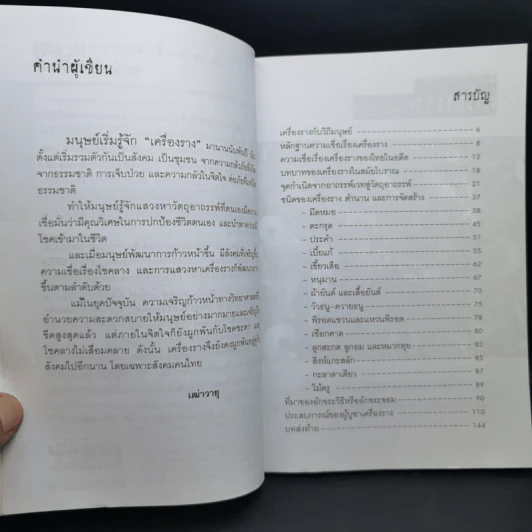 คำนำผู้เขียน
มนุษย์เริ่มรู้จัก "เครื่องราง" มานานนับพันปี
ตั้งแต่เริ่มรวมตัวกันเป็นสังคม เป็นชุมชน จากความกลัวภัย
จากธรรมชาติ การเจ็บป่วย และความกลัวในจิตใจ ต่อภัยที่เหนือ
ธรรมชาติ
ทำให้มนุษย์รู้จักแสวงหาวัตถุอาถรรพ์ที่ตนเอง
เชื่อมั่นว่ามีคุณวิเศษในการปกป้องชีวิตตนเอง และนำพาความมี
โชคเข้ามาในชีวิต
และเมื่อมนุษย์พัฒนาการก้าวหน้าขึ้น มีสังคมที่เจริญขึ้น
ความเชื่อเรื่องโชคลาง และการแสวงหาเครื่องรางก็พัฒนา
ขึ้นตามลำดับด้วย
แม้ในยุคปัจจุบัน ความเจริญก้าวหน้าทางวิทยาศาสตร์
อำนวยความสะดวกสบายให้มนุษย์อย่างมากมายและเจริญถึง
ขีดสูงสุดแล้ว แต่ภายในจิตใจก็ยังผูกพันกับโชคชะตา
โชคลางไม่เสื่อมคลาย ดังนั้น เครื่องรางจึงยังคงผูกพันอยู่กับ
สังคมไปอีกนาน โดยเฉพาะสังคมคนไทย
เฒ่าวายุ
สารบัญ
เครื่องรางกับวิถีมนุษย์ 6
หลักฐานความเชื่อเรื่องเครื่องราง 8
ความเชื่อเรื่องเครื่องรางของไทยในอดีต 12
บทบาทของเครื่องรางในสมัยโบราณ 18
จุดกำเนิดจากอาถรรพ์เวทสู่วัตถุอาถรรพ์ 21
ชนิดของเครื่องราง ตำนาน และการจัดสร้าง 37
- มีดหมอ 38
- ตะกรุด 45
- ประคำ 51
- เบี้ยแก้ 55
- เขี้ยวเสือ 62
- หนุมาน 67
- ผ้ายันต์ และเสื้อยันต์ 70
- วัวธนู-ควายธนู 75
- พิรอดแขวนและแหวนพิรอด 78
- เชือกคาด 80
- ลูกสะกด ลูกอม และหมากทุย 82
- สิงห์แกะสลัก 85
- กะลาตาเดียว 87
- ไม้ครู 89
ที่มาของอักขระวิธีหรืออักขระขอม 90
ประสบการณ์ของผู้บูชาเครื่องราง 110
บทส่งท้าย 144